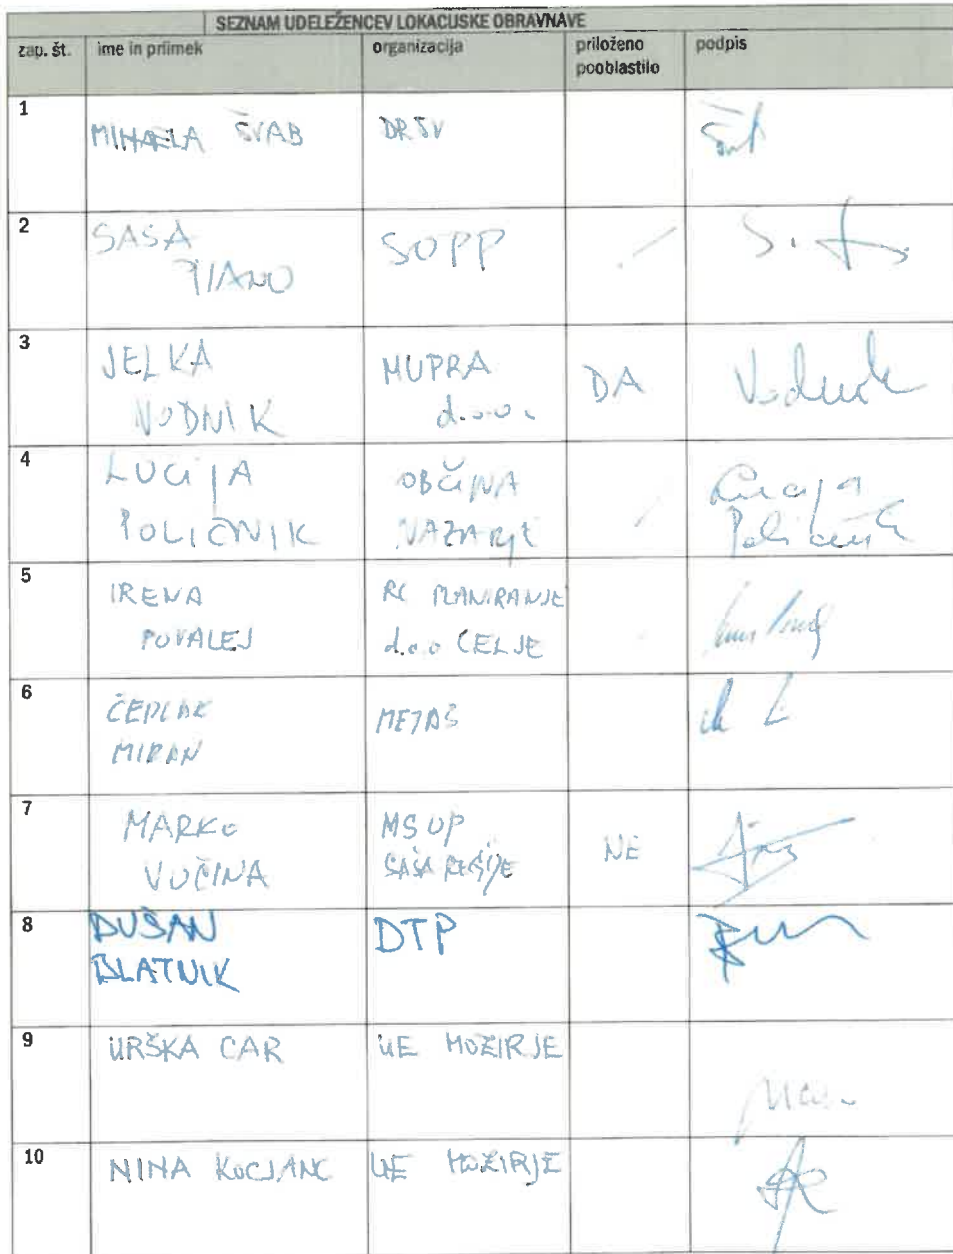 SEZNAM UDELEŽENCEV LOKACIJSKE OBRAVNAVE
zap. št. ime in priimek organizacija priloženo pooblastilo podpis
1 MIHAELA ŠVAB DRSV
2 SAŠA PIANO SOPP /
3 JELKA VODNIK MUPRA d.o.o. DA Vodnik
4 LUCIJA POLIČNIK OBČINA NAZARJE / Lucija Poličnik
5 IRENA POVALEJ RC PLANIRANJE d.o.o CELJE
6 ČEPLAK MIRAN
7 MARKO VUČINA MSUP SAŠA REGIJE NE
8 DUŠAN BLATNIK DTP
9 URŠKA CAR UE MOZIRJE
10 NINA KOCJANC UE MOZIRJE